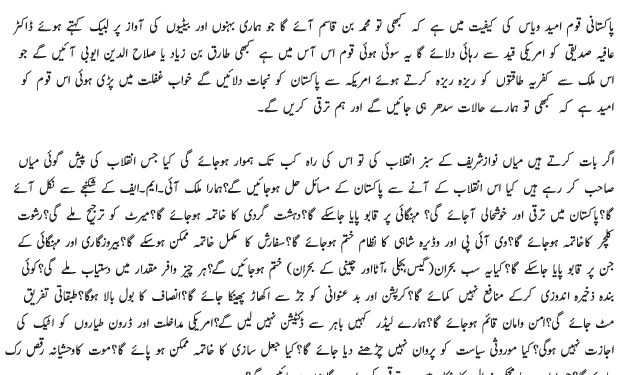 پاکستانی قوم امید ویاس کی کیفیت میں ہے کہ کبھی تو محمد بن قاسم آئے گا جو ہماری بہنوں اور بیٹیوں کی آواز پر لبیک کہتے ہوئے ڈاکٹر
عافیہ صدیقی کو امریکی قید سے رہائی دلائے گا یہ سوئی ہوئی قوم اس آس میں ہے کبھی طارق بن زیاد یا صلاح الدین ایوبی آئیں گے جو
اس ملک سے کفریہ طاقتوں کو ریزہ ریزہ کرتے ہوئے امریکہ سے پاکستان کو نجات دلائیں گے خواب غفلت میں پڑی ہوئی اس قوم کو
امید ہے کہ کبھی تو ہمارے حالات سدھر ہی جائیں گے اور ہم ترقی کریں گے۔
اگر بات کرتے ہیں میاں نوازشریف کے سبز انقلاب کی تو اس کی راہ کب تک ہموار ہوجائے گی کیا جس انقلاب کی پیش گوئی میاں
صاحب کر رہے ہیں کیا اس انقلاب کے آنے سے پاکستان کے مسائل حل ہوجائیں گے؟ہمارا ملک آئی۔ایم۔ایف کے شکنجے سے نکل آئے
گا؟پاکستان میں ترقی اور خوشحالی آجائے گی؟ مہنگائی پر قابو پایا جاسکے گا؟دہشت گردی کا خاتمہ ہوجائے گا؟میرٹ کو ترجیح ملے گی؟رشوت
کلچر کاخاتمہ ہوجائے گا؟وی آئی پی اور وڈیرہ شاہی کا نظام ختم ہوجائے گا؟سفارش کا مکمل خاتمہ ممکن ہوسکے گا؟بیروزگاری اور مہنگائی کے
جن پر قابو پایا جاسکے گا؟کیایہ سب بحران(گیس،بجلی ،آٹااور چینی کے بحران) ختم ہوجائیں گے؟ہر چیز وافر مقدار میں دستیاب ملے گی؟کوئی
بندہ ذخیرہ اندوزی کرکے منافع نہیں کمائے گا؟کرپشن اور بد عنوانی کو جڑ سے اکھاڑ پھینکا جائے گا؟انصاف کا بول بالا ہوگا؟طبقاتی تفریق
مٹ جائے گی؟امن وامان قائم ہوجائے گا؟ہمارے لیڈر کہیں باہر سے ڈکٹیشن نہیں لیں گے؟امریکی مداخلت اور ڈرون طیاروں کو اٹیک کی
اجازت نہیں ہوگی؟کیا موروثی سیاست کو پروان نہیں چڑھنے دیا جائے گا؟کیا جعل سازی کا خاتمہ ممکن ہو پائے گا؟موت کاوحشیانہ رقص رک